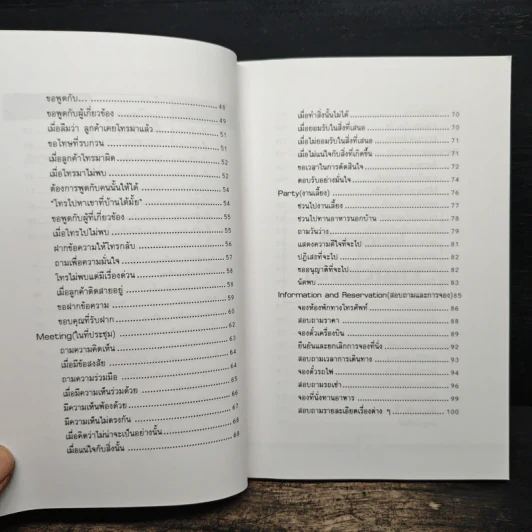 ขอพูดกับ... 48
ขอพูดกับผู้เกี่ยวข้อง 49
เมื่อลืมว่า ลูกค้าเคยโทรมาแล้ว 51
ขอโทษที่รบกวน 51
เมื่อลูกค้าโทรมาผิด 52
เมื่อโทรมาไม่พบ 52
ต้องการพูดกับคนนั้นให้ได้ 54
"โทรไปหาเขาที่บ้านได้มั้ย" 54
ขอพูดกับผู้ที่เกี่ยวข้อง 55
เมื่อโทรไปไม่พบ 55
ฝากข้อความให้โทรกลับ 56
ถามเพื่อความมั่นใจ
โทรไม่พบแต่มีเรื่องด่วน 58
เมื่อลูกค้าติดสายอยู่
ขอฝากข้อความ
ขอบคุณที่รับฝาก
Meeting(ในที่ประชุม) 62
ถามความคิดเห็น
เมื่อมีข้อสงสัย
ถามความร่วมมือ
เมื่อมีความเห็นร่วมด้วย
มีความเห็นพ้องด้วย
มีความเห็นไม่ตรงกัน
เมื่อคิดว่าไม่น่าจะเป็นอย่างนั้น
เมื่อแน่ใจกับสิ่งนั้น
เมื่อทำสิ่งนั้นไม่ได้ 70
เมื่อยอมรับในสิ่งที่เสนอ 70
เมื่อไม่ยอมรับในสิ่งที่เสนอ 71
เมื่อไม่แน่ใจกับสิ่งที่เกิดขึ้น 71
ขอเวลาในการตัดสินใจ 72
ตอบรับอย่างมั่นใจ 74
Party(งานเลี้ยง) 76
ชวนไปงานเลี้ยง 77
ชวนไปทานอาหารนอกบ้าน 77
ถามวันว่าง 79
แสดงความดีใจที่จะไป 81
ปฏิเสธที่จะไป 82
ขออนุญาติที่จะไป 82
นัดพบ 83
Information and Reservation(สอบถามและการจอง)85
จองห้องพักทางโทรศัพท์ 86
สอบถามราคา 88
จองตั๋วเครื่องบิน 90
ยืนยันและยกเลิกการจองที่นั่ง 92
สอบถามเวลาการเดินทาง 93
จองตั๋วรถไฟ 94
สอบถามรถเช่า 96
จองที่นั่งทานอาหาร 99
สอบถามรายละเอียดเรื่องต่าง ๆ 100